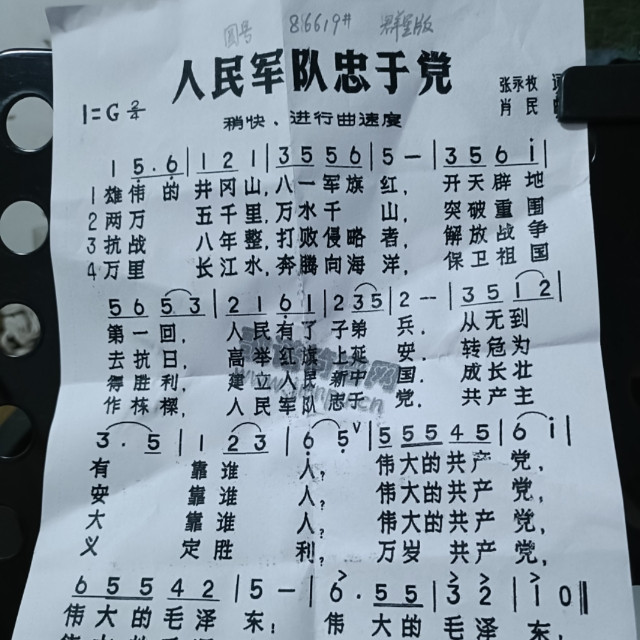 圆号 816619# 群星版
人民军队忠于党
张永枚 词
肖民 曲
1=G 2/4
稍快、进行曲速度
1 5·6 | 1 2 1 | 3 5 5 6 | 5 — | 3 5 6 i |
1雄伟的井冈山,八一军旗红,开天辟地
2两万五千里,万水千山,突破重围
3抗战八年整,打败侵略者,解放战争
4万里长江水,奔腾向海洋,保卫祖国
5 6 5 3 | 2 1 6 1 | 2 3 5 | 2 -- | 3 5 1 2 |
第一回,人民有了子弟兵.从无到
去抗日,高举红旗上延安.转危为
得胜利,建立人民新中国.成长壮
作栋樑,人民军队忠于党,共产主
3 · 5 | 1 2 3 | 6 5 V | 5 5 5 4 5 | 6 i |
有靠谁人?伟大的共产党,
安靠谁人?伟大的共产党,
大靠谁人?伟大的共产党,
义定胜利,万岁共产党,
6 5 5 4 2 | 5 — | 6 · 5 5 | 3 2 | 1 0 ‖
伟大的毛泽东:伟大的毛泽东